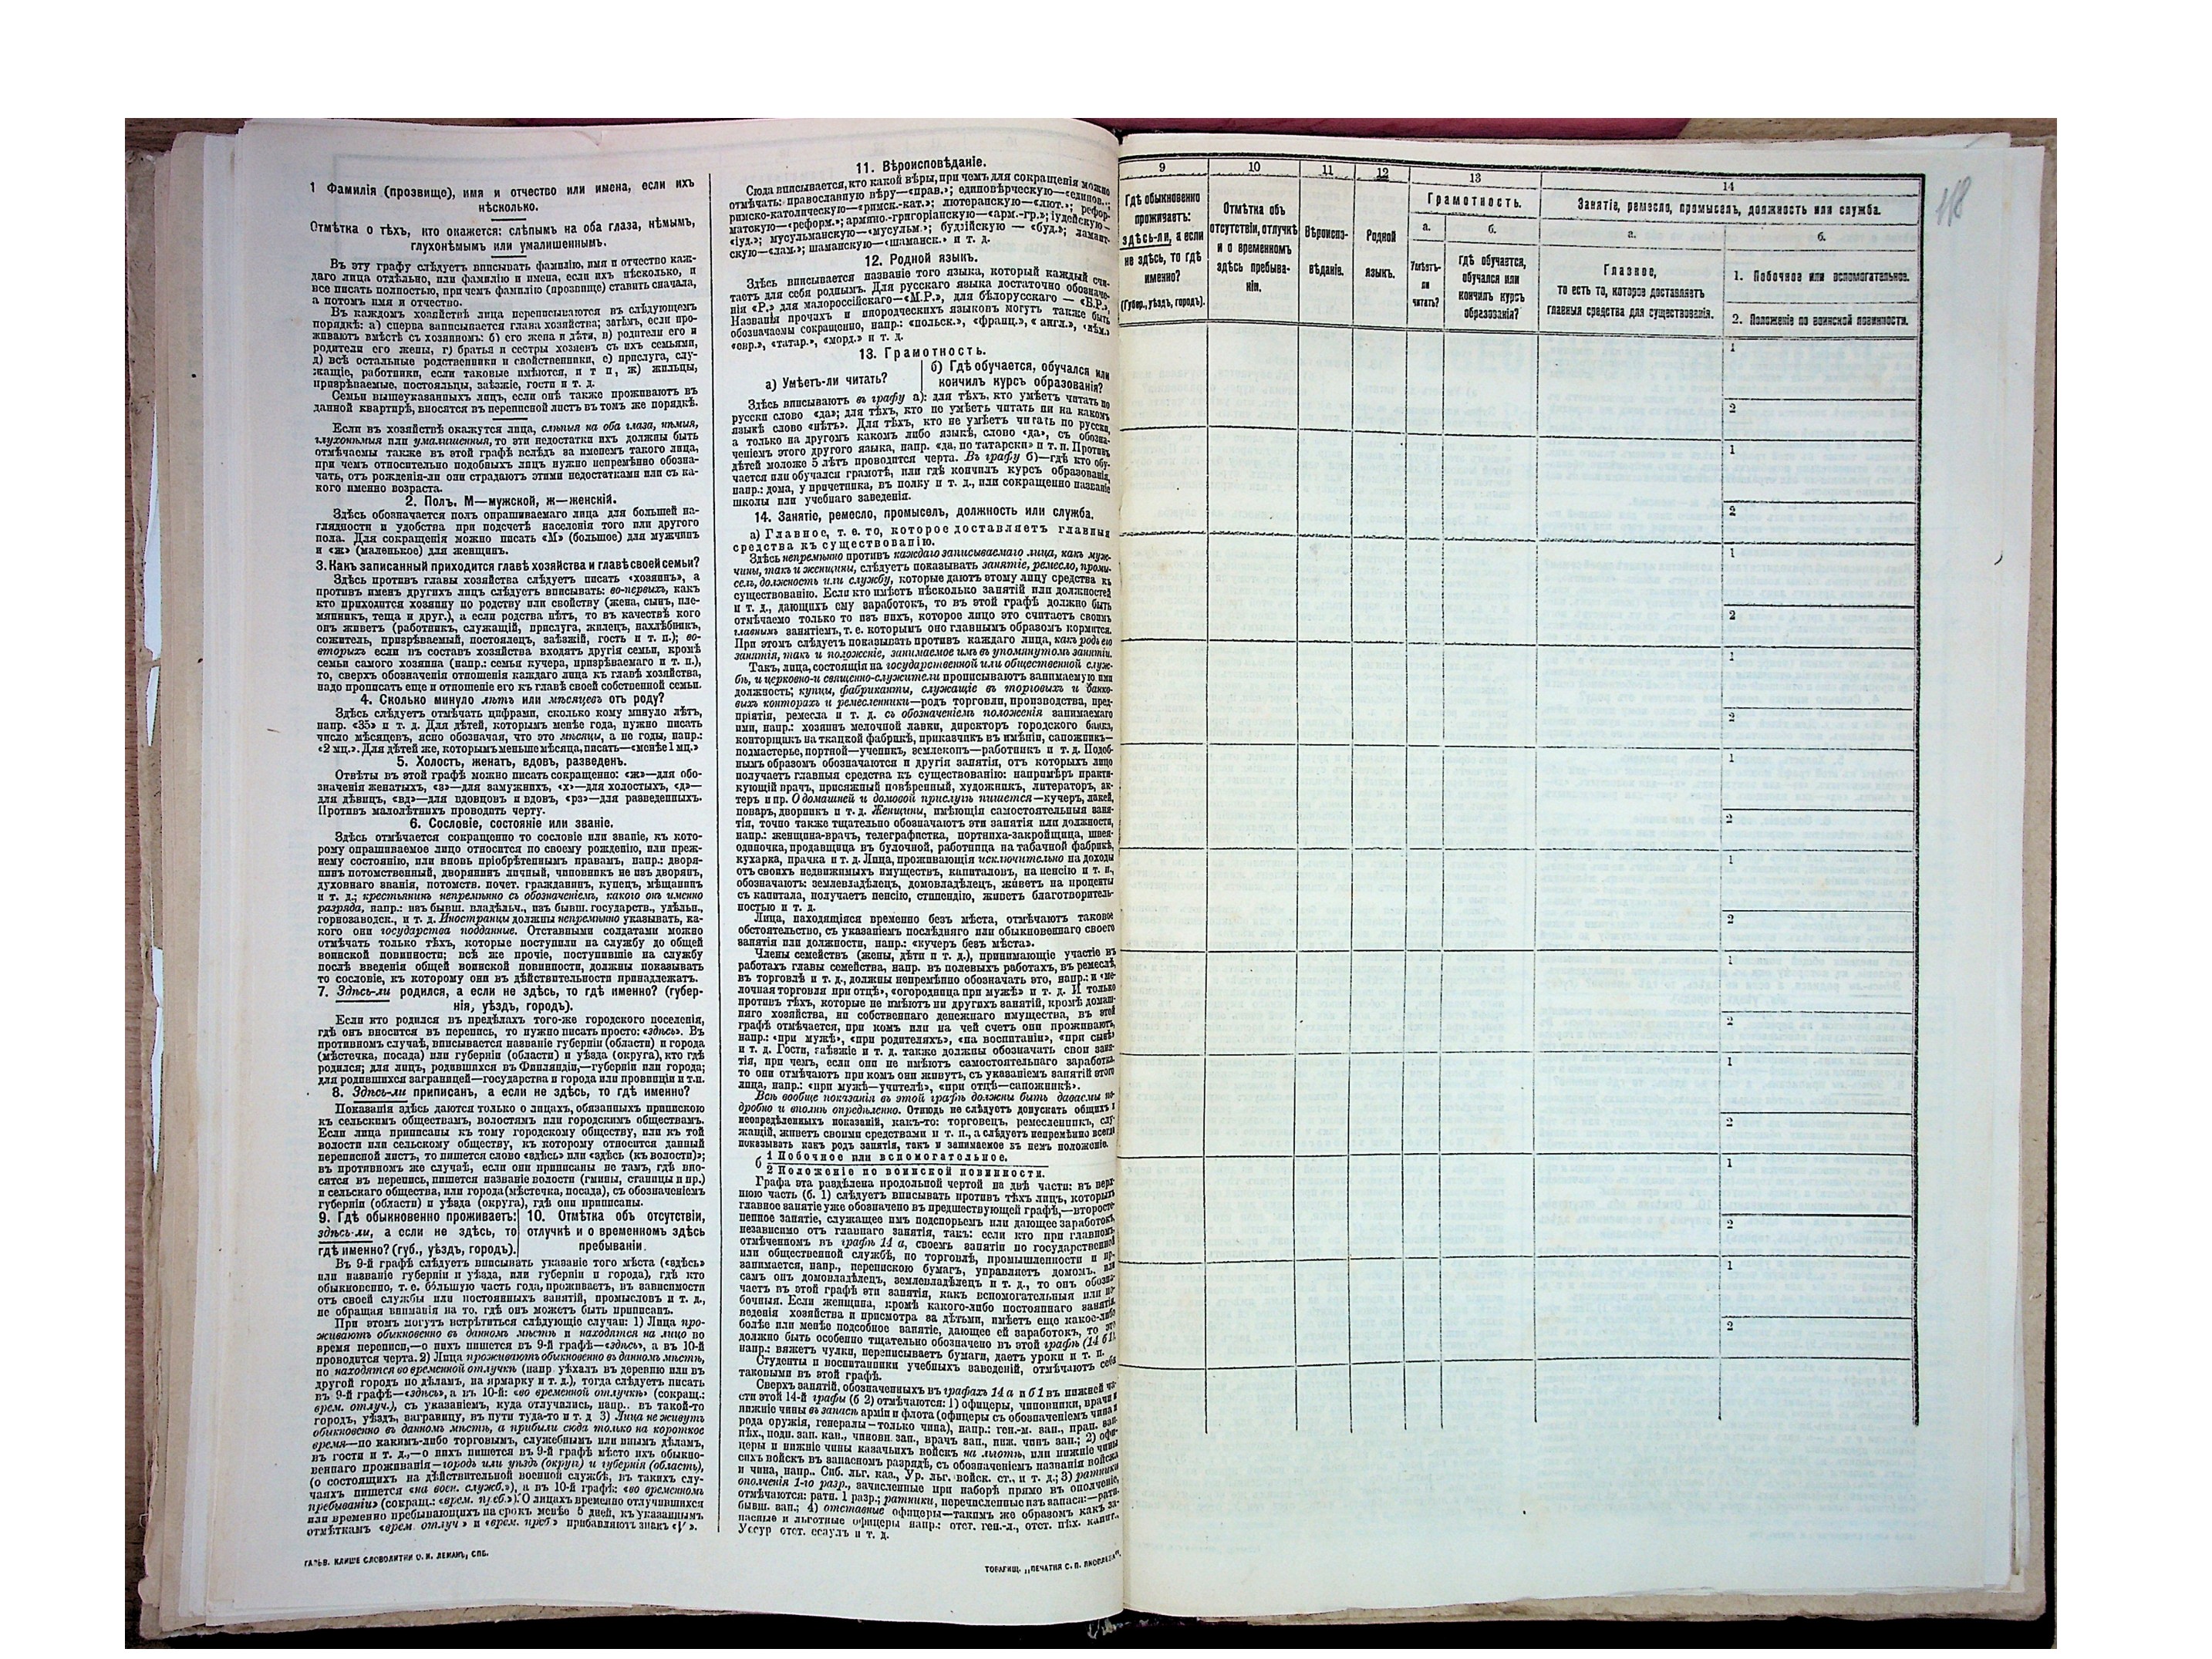 1 Фамилія (прозвище), имя и отчество или имена, если ихъ
нѣсколько.
Отмѣтка о тѣхъ, кто окажется: слѣпымъ на оба глаза, нѣмымъ,
глухонѣмымъ или умалишеннымъ.
Въ эту графу слѣдуетъ вписывать фамилію, имя и отчество каж-
даго лица отдѣльно, или фамилію и имена, если ихъ нѣсколько, и
все писать полностью, при чемъ фамилію (прозвище) ставить сначала,
а потомъ имя и отчество.
Въ каждомъ хозяйствѣ лица переписываются въ слѣдующемъ
порядкѣ: а) сперва записывается глава хозяйства; затѣмъ, если про-
живаютъ вмѣстѣ съ хозяиномъ: б) его жена и дѣти, в) родители его и
родители его жены, г) братья и сестры хозяевъ съ ихъ семьями,
д) всѣ остальные родственники и свойственники, е) прислуга, слу-
жащіе, работники, если таковые имѣются, и т п, ж) жильцы,
призрѣваемые, постояльцы, заѣзжіе, гости и т. д.
Семьи вышеуказанныхъ лицъ, если онѣ также проживаютъ въ
данной квартирѣ, вносятся въ переписной листъ въ томъ же порядкѣ.
Если въ хозяйствѣ окажутся лица, слѣпыя на оба глаза, нѣмыя,
глухонѣмыя или умалишенныя, то эти недостатки ихъ должны быть
отмѣчаемы также въ этой графѣ вслѣдъ за именемъ такого лица,
при чемъ относительно подобныхъ лицъ нужно непремѣнно обозна-
чать, отъ рожденія-ли они страдаютъ этими недостатками или съ ка-
кого именно возраста.
2. Полъ. М—мужской, ж—женскій.
Здѣсь обозначается полъ опрашиваемаго лица для большей на-
глядности и удобства при подсчетѣ населенія того или другого
пола. Для сокращенія можно писать «М» (большое) для мужчинъ
и «ж» (маленькое) для женщинъ.
3. Какъ записанный приходится главѣ хозяйства и главѣ своей семьи?
Здѣсь противъ главы хозяйства слѣдуетъ писать «хозяинъ», а
противъ именъ другихъ лицъ слѣдуетъ вписывать: во-первыхъ, какъ
кто приходится хозяину по родству или свойству (жена, сынъ, пле-
мянникъ, теща и друг.), а если родства нѣтъ, то въ качествѣ кого
онъ живетъ (работникъ, служащій, прислуга, жилецъ, нахлѣбникъ,
сожитель, призрѣваемый, постоялецъ, заѣзжій, гость и т. п.); во-
вторыхъ если въ составъ хозяйства входятъ другія семьи, кромѣ
семьи самого хозяина (напр.: семья кучера, призрѣваемаго и т. п.),
то, сверхъ обозначенія отношенія каждаго лица къ главѣ хозяйства,
надо прописать еще и отношеніе его къ главѣ своей собственной семьи.
4. Сколько минуло лѣтъ или мѣсяцевъ отъ роду?
Здѣсь слѣдуетъ отмѣчать цифрами, сколько кому минуло лѣтъ,
напр. «35» и т. д. Для дѣтей, которымъ менѣе года, нужно писать
число мѣсяцевъ, ясно обозначая, что это мѣсяцы, а не годы, напр.:
«2 мц.». Для дѣтей же, которымъ меньше мѣсяца, писать—«менѣе 1 мц.»
5. Холостъ, женатъ, вдовъ, разведенъ.
Отвѣты въ этой графѣ можно писать сокращенно: «ж»—для обо-
значенія женатыхъ, «з»—для замужнихъ, «х»—для холостыхъ, «д»—
для дѣвицъ, «вд»—для вдовцовъ и вдовъ, «рз»—для разведенныхъ.
Противъ малолѣтнихъ проводить черту.
6. Сословіе, состояніе или званіе.
Здѣсь отмѣчается сокращенно то сословіе или званіе, къ кото-
рому опрашиваемое лицо относится по своему рожденію, или преж-
нему состоянію, или вновь пріобрѣтеннымъ правамъ, напр.: дворя-
нинъ потомственный, дворянинъ личный, чиновникъ не изъ дворянъ,
духовнаго званія, потомств. почет. гражданинъ, купецъ, мѣщанинъ
и т. д.; крестьянинъ непремѣнно съ обозначеніемъ, какого онъ именно
разряда, напр.: изъ бывш. владѣльч., изъ бывш. государств., удѣльн.,
горнозаводск., и т. д. Иностранцы должны непремѣнно указывать, ка-
кого они государства подданные. Отставными солдатами можно
отмѣчать только тѣхъ, которые поступили на службу до общей
воинской повинности; всѣ же прочіе, поступившіе на службу
послѣ введенія общей воинской повинности, должны показывать
то сословіе, къ которому они въ дѣйствительности принадлежатъ.
7. Здѣсь-ли родился, а если не здѣсь, то гдѣ именно? (губер-
нія, уѣздъ, городъ).
Если кто родился въ предѣлахъ того-же городского поселенія,
гдѣ онъ вносится въ перепись, то нужно писать просто: «здѣсь». Въ
противномъ случаѣ, вписывается названіе губерніи (области) и города
(мѣстечка, посада) или губерніи (области) и уѣзда (округа), кто гдѣ
родился; для лицъ, родившихся въ Финляндіи,—губерніи или города;
для родившихся заграницей—государства и города или провинціи и т.п.
8. Здѣсь-ли приписанъ, а если не здѣсь, то гдѣ именно?
Показанія здѣсь даются только о лицахъ, обязанныхъ припискою
къ сельскимъ обществамъ, волостямъ или городскимъ обществамъ.
Если лица приписаны къ тому городскому обществу, или къ той
волости или сельскому обществу, къ которому относится данный
переписной листъ, то пишется слово «здѣсь» или «здѣсь (къ волости)»;
въ противномъ же случаѣ, если они приписаны не тамъ, гдѣ вно-
сятся въ перепись, пишется названіе волости (гмины, станицы и пр.)
и сельскаго общества, или города (мѣстечка, посада), съ обозначеніемъ
губерніи (области) и уѣзда (округа), гдѣ они приписаны.
9. Гдѣ обыкновенно проживаетъ:
здѣсь-ли, а если не здѣсь, то
гдѣ именно? (губ., уѣздъ, городъ).
10. Отмѣтка объ отсутствіи,
отлучкѣ и о временномъ здѣсь
пребываніи.
Въ 9-й графѣ слѣдуетъ вписывать указаніе того мѣста («здѣсь»
или названіе губерніи и уѣзда, или губерніи и города), гдѣ кто
обыкновенно, т. е. бо́льшую часть года, проживаетъ, въ зависимости
отъ своей службы или постоянныхъ занятій, промысловъ и т. д.,
не обращая вниманія на то, гдѣ онъ можетъ быть приписанъ.
При этомъ могутъ встрѣтиться слѣдующіе случаи: 1) Лица про-
живаютъ обыкновенно въ данномъ мѣстѣ и находятся на лицо во
время переписи,—о нихъ пишется въ 9-й графѣ—«здѣсь», а въ 10-й
проводится черта. 2) Лица проживаютъ обыкновенно въ данномъ мѣстѣ,
но находятся во временной отлучкѣ (напр уѣхалъ въ деревню или въ
другой городъ по дѣламъ, на ярмарку и т. д.), тогда слѣдуетъ писать
въ 9-й графѣ—«здѣсь», а въ 10-й: «во временной отлучкѣ» (сокращ.:
врем. отлуч.), съ указаніемъ, куда отлучались, напр.. въ такой-то
городъ, уѣздъ, заграницу, въ пути туда-то и т. д 3) Лица не живутъ
обыкновенно въ данномъ мѣстѣ, а прибыли сюда только на короткое
время—по какимъ-либо торговымъ, служебнымъ или инымъ дѣламъ,
въ гости и т. д.,—о нихъ пишется въ 9-й графѣ мѣсто ихъ обыкно-
веннаго проживанія—городъ или уѣздъ (округъ) и губернія (область),
(о состоящихъ на дѣйствительной военной службѣ, въ такихъ слу-
чаяхъ пишется «на воен. служб.»), а въ 10-й графѣ: «во временномъ
пребываніи» (сокращ.: «врем. преб.»). О лицахъ временно отлучившихся
или временно пребывающихъ на срокъ менѣе 5 дней, къ указаннымъ
отмѣткамъ «врем. отлуч» и «врем. преб.» прибавляютъ знакъ «V».
ГАЛЬВ. КЛИШЕ СЛОВОЛИТНИ О. И. ЛЕМАНЪ, СПБ.
11. Вѣроисповѣданіе.
Сюда вписывается, кто какой вѣры, при чемъ для сокращенія можно
отмѣчать: православную вѣру—«прав.»; единовѣрческую—«единов.»;
римско-католическую—«римск.-кат.»; лютеранскую—«лют.»; рефор-
матскую—«реформ.»; армяно.-григоріанскую—«арм.-гр.»; іудейскую—
«іуд.»; мусульманскую—«мусульм.»; буддійскую — «буд.»; ламаит-
скую—«лам.»; шаманскую—«шаманск.» и т. д.
12. Родной языкъ.
Здѣсь вписывается названіе того языка, который каждый счи-
таетъ для себя роднымъ. Для русскаго языка достаточно обозначе-
нія «Р.» для малороссійскаго—«М.Р.», для бѣлорусскаго — «Б.Р.»,
Названія прочихъ и инородческихъ языковъ могутъ также быть
обозначаемы сокращенно, напр.: «польск.», «франц.», «англ.», «нѣм.»
«евр.», «татар.», «морд.» и т. д.
13. Грамотность.
а) Умѣетъ-ли читать?
б) Гдѣ обучается, обучался или
кончилъ курсъ образованія?
Здѣсь вписываютъ въ графу а): для тѣхъ, кто умѣетъ читать по
русски слово «да»; для тѣхъ, кто не умѣетъ читать ни на какомъ
языкѣ слово «нѣтъ». Для тѣхъ, кто не умѣетъ читать по русски,
а только на другомъ какомъ либо языкѣ, слово «да», съ обозна-
ченіемъ этого другого языка, напр. «да, по татарски» и т. п. Противъ
дѣтей моложе 5 лѣтъ проводится черта. Въ графу б)—гдѣ кто обу-
чается или обучался грамотѣ, или гдѣ кончилъ курсъ образованія,
напр.: дома, у причетника, въ полку и т. д., или сокращенно названіе
школы или учебнаго заведенія.
14. Занятіе, ремесло, промыселъ, должность или служба.
а) Главное, т. е. то, которое доставляетъ главныя
средства къ существованію.
Здѣсь непремѣнно противъ каждаго записываемаго лица, какъ муж-
чины, такъ и женщины, слѣдуетъ показывать занятіе, ремесло, промы-
селъ, должность или службу, которые даютъ этому лицу средства къ
существованію. Если кто имѣетъ нѣсколько занятій или должностей
и т. д., дающихъ ему заработокъ, то въ этой графѣ должно быть
отмѣчаемо только то изъ нихъ, которое лицо это считаетъ своимъ
главнымъ занятіемъ, т. е. которымъ оно главнымъ образомъ кормится.
При этомъ слѣдуетъ показывать противъ каждаго лица, какъ родъ его
занятія, такъ и положеніе, занимаемое имъ въ упомянутомъ занятіи.
Такъ, лица, состоящія на государственной или общественной служ-
бѣ, и церковно-и священно-служители прописываютъ занимаемую ими
должность; купцы, фабриканты, служащіе въ торговыхъ и банко-
выхъ конторахъ и ремесленники—родъ торговли, производства, пред-
пріятія, ремесла и т. д. съ обозначеніемъ положенія занимаемаго
ими, напр.: хозяинъ мелочной лавки, директоръ городского банка,
конторщикъ на ткацкой фабрикѣ, приказчикъ въ имѣніи, сапожникъ—
подмастерье, портной—ученикъ, землекопъ—работникъ и т. д. Подоб-
нымъ образомъ обозначаются и другія занятія, отъ которыхъ лицо
получаетъ главныя средства къ существованію: напримѣръ практи-
кующій врачъ, присяжный повѣренный, художникъ, литераторъ, ак-
теръ и пр. О домашней и домовой прислугѣ пишется—кучеръ, лакей,
поваръ, дворникъ и т. д. Женщины, имѣющія самостоятельныя заня-
тія, точно также тщательно обозначаютъ эти занятія или должности,
напр.: женщина-врачъ, телеграфистка, портниха-закройщица, швея-
одиночка, продавщица въ булочной, работница на табачной фабрикѣ,
кухарка, прачка и т. д. Лица, проживающія исключительно на доходы
отъ своихъ недвижимыхъ имуществъ, капиталовъ, на пенсію и т. п.,
обозначаютъ: землевладѣлецъ, домовладѣлецъ, живетъ на проценты
съ капитала, получаетъ пенсію, стипендію, живетъ благотворитель-
ностью и т. д.
Лица, находящіяся временно безъ мѣста, отмѣчаютъ таковое
обстоятельство, съ указаніемъ послѣдняго или обыкновеннаго своего
занятія или должности, напр.: «кучеръ безъ мѣста».
Члены семействъ (жены, дѣти и т. д.), принимающіе участіе въ
работахъ главы семейства, напр. въ полевыхъ работахъ, въ ремеслѣ,
въ торговлѣ и т. д., должны непремѣнно обозначать это, напр.: и «ме-
лочная торговля при отцѣ», «огородница при мужѣ» и т. д. И только
противъ тѣхъ, которые не имѣютъ ни другихъ занятій, кромѣ домаш-
няго хозяйства, ни собственнаго денежнаго имущества, въ этой
графѣ отмѣчается, при комъ или на чей счетъ они проживаютъ,
напр.: «при мужѣ», «при родителяхъ», «на воспитаніи», «при сынѣ»
и т. д. Гости, заѣзжіе и т. д. также должны обозначать свои заня-
тія, при чемъ, если они не имѣютъ самостоятельнаго заработка,
то они отмѣчаютъ при комъ они живутъ, съ указаніемъ занятій этого
лица, напр.: «при мужѣ—учителѣ», «при отцѣ—сапожникѣ».
Всѣ вообще показанія въ этой графѣ должны быть даваемы по-
дробно и вполнѣ опредѣленно. Отнюдь не слѣдуетъ допускать общихъ и
неопредѣленныхъ показаній, какъ-то: торговецъ, ремесленникъ, слу-
жащій, живетъ своими средствами и т. п., а слѣдуетъ непремѣнно всегда
показывать какъ родъ занятія, такъ и занимаемое въ немъ положеніе.
б 1 Побочное или вспомогательное.
2 Положеніе по воинской повинности.
Графа эта раздѣлена продольной чертой на двѣ части: въ верх-
нюю часть (б. 1) слѣдуетъ вписывать противъ тѣхъ лицъ, которыхъ
главное занятіе уже обозначено въ предшествующей графѣ,—второсте-
пенное занятіе, служащее имъ подспорьемъ или дающее заработокъ,
независимо отъ главнаго занятія, такъ: если кто при главномъ
отмѣченномъ въ графѣ 14 а, своемъ занятіи по государственной
или общественной службѣ, по торговлѣ, промышленности и пр.
занимается, напр., перепиской бумагъ, управляетъ домомъ, или
самъ онъ домовладѣлецъ, землевладѣлецъ и т. д., то онъ обозна-
чаетъ въ этой графѣ эти занятія, какъ вспомогательныя или по-
бочныя. Если женщина, кромѣ какого-либо постояннаго занятія,
веденія хозяйства и присмотра за дѣтьми, имѣетъ еще какое-либо
болѣе или менѣе подсобное занятіе, дающее ей заработокъ, то это
должно быть особенно тщательно обозначено въ этой графѣ (14 б1),
напр.: вяжетъ чулки, переписываетъ бумаги, даетъ уроки и т. п.
Студенты и воспитанники учебныхъ заведеній, отмѣчаютъ себя
таковыми въ этой графѣ.
Сверхъ занятій, обозначенныхъ въ графахъ 14 а и б1 въ нижней ча-
сти этой 14-й графы (б 2) отмѣчаются: 1) офицеры, чиновники, врачи и
нижніе чины въ запасѣ арміи и флота (офицеры съ обозначеніемъ чина и
рода оружія, генералы—только чина), напр.: ген.-м. зап., прап. зап.
пѣх., подп. зап. кав., чиновн. зап., врачъ зап., ниж. чинъ зап.; 2) офи-
церы и нижніе чины казачьихъ войскъ на льготѣ, или нижніе чины
сихъ войскъ въ запасномъ разрядѣ, съ обозначеніемъ названія войска
и чина, напр., Сиб. льг. каз., Ур. льг. войск. ст., и т. д.; 3) ратники
ополченія 1-го разр., зачисленные при наборѣ прямо въ ополченіе,
отмѣчаются: ратн. 1 разр.; ратники, перечисленные изъ запаса:—ратн.
бывш. зап.; 4) отставные офицеры—такимъ же образомъ какъ за-
пасные и льготные офицеры напр.: отст. ген.-л., отст. пѣх. капит.,
Уссур отст. есаулъ и т. д.
ТОВАРИЩ. „ПЕЧАТНЯ С. П. ЯКОВЛЕВА".
118
9 10 11 12 13 14
Гдѣ обыкновенно
проживаетъ:
здѣсь-ли, а если
не здѣсь, то гдѣ
именно?
(Губер., уѣздъ, городъ).
Отмѣтка объ
отсутствіи, отлучкѣ
и о временномъ
здѣсь пребыва-
ніи.
Вѣроиспо-
вѣданіе.
Родной
языкъ.
Грамотность.
а.
Умѣетъ-
ли
читать?
б.
гдѣ обучается,
обучался или
кончилъ курсъ
образованія?
Занятіе, ремесло, промыселъ, должность или служба.
а.
Главное,
то есть то, которое доставляетъ
главныя средства для существованія.
б.
1. Побочное или вспомогательное.
2. Положеніе по воинской повинности.
1
2
1
2
1
2
1
2
1
2
1
2
1
2
1
2
1
2
1
2